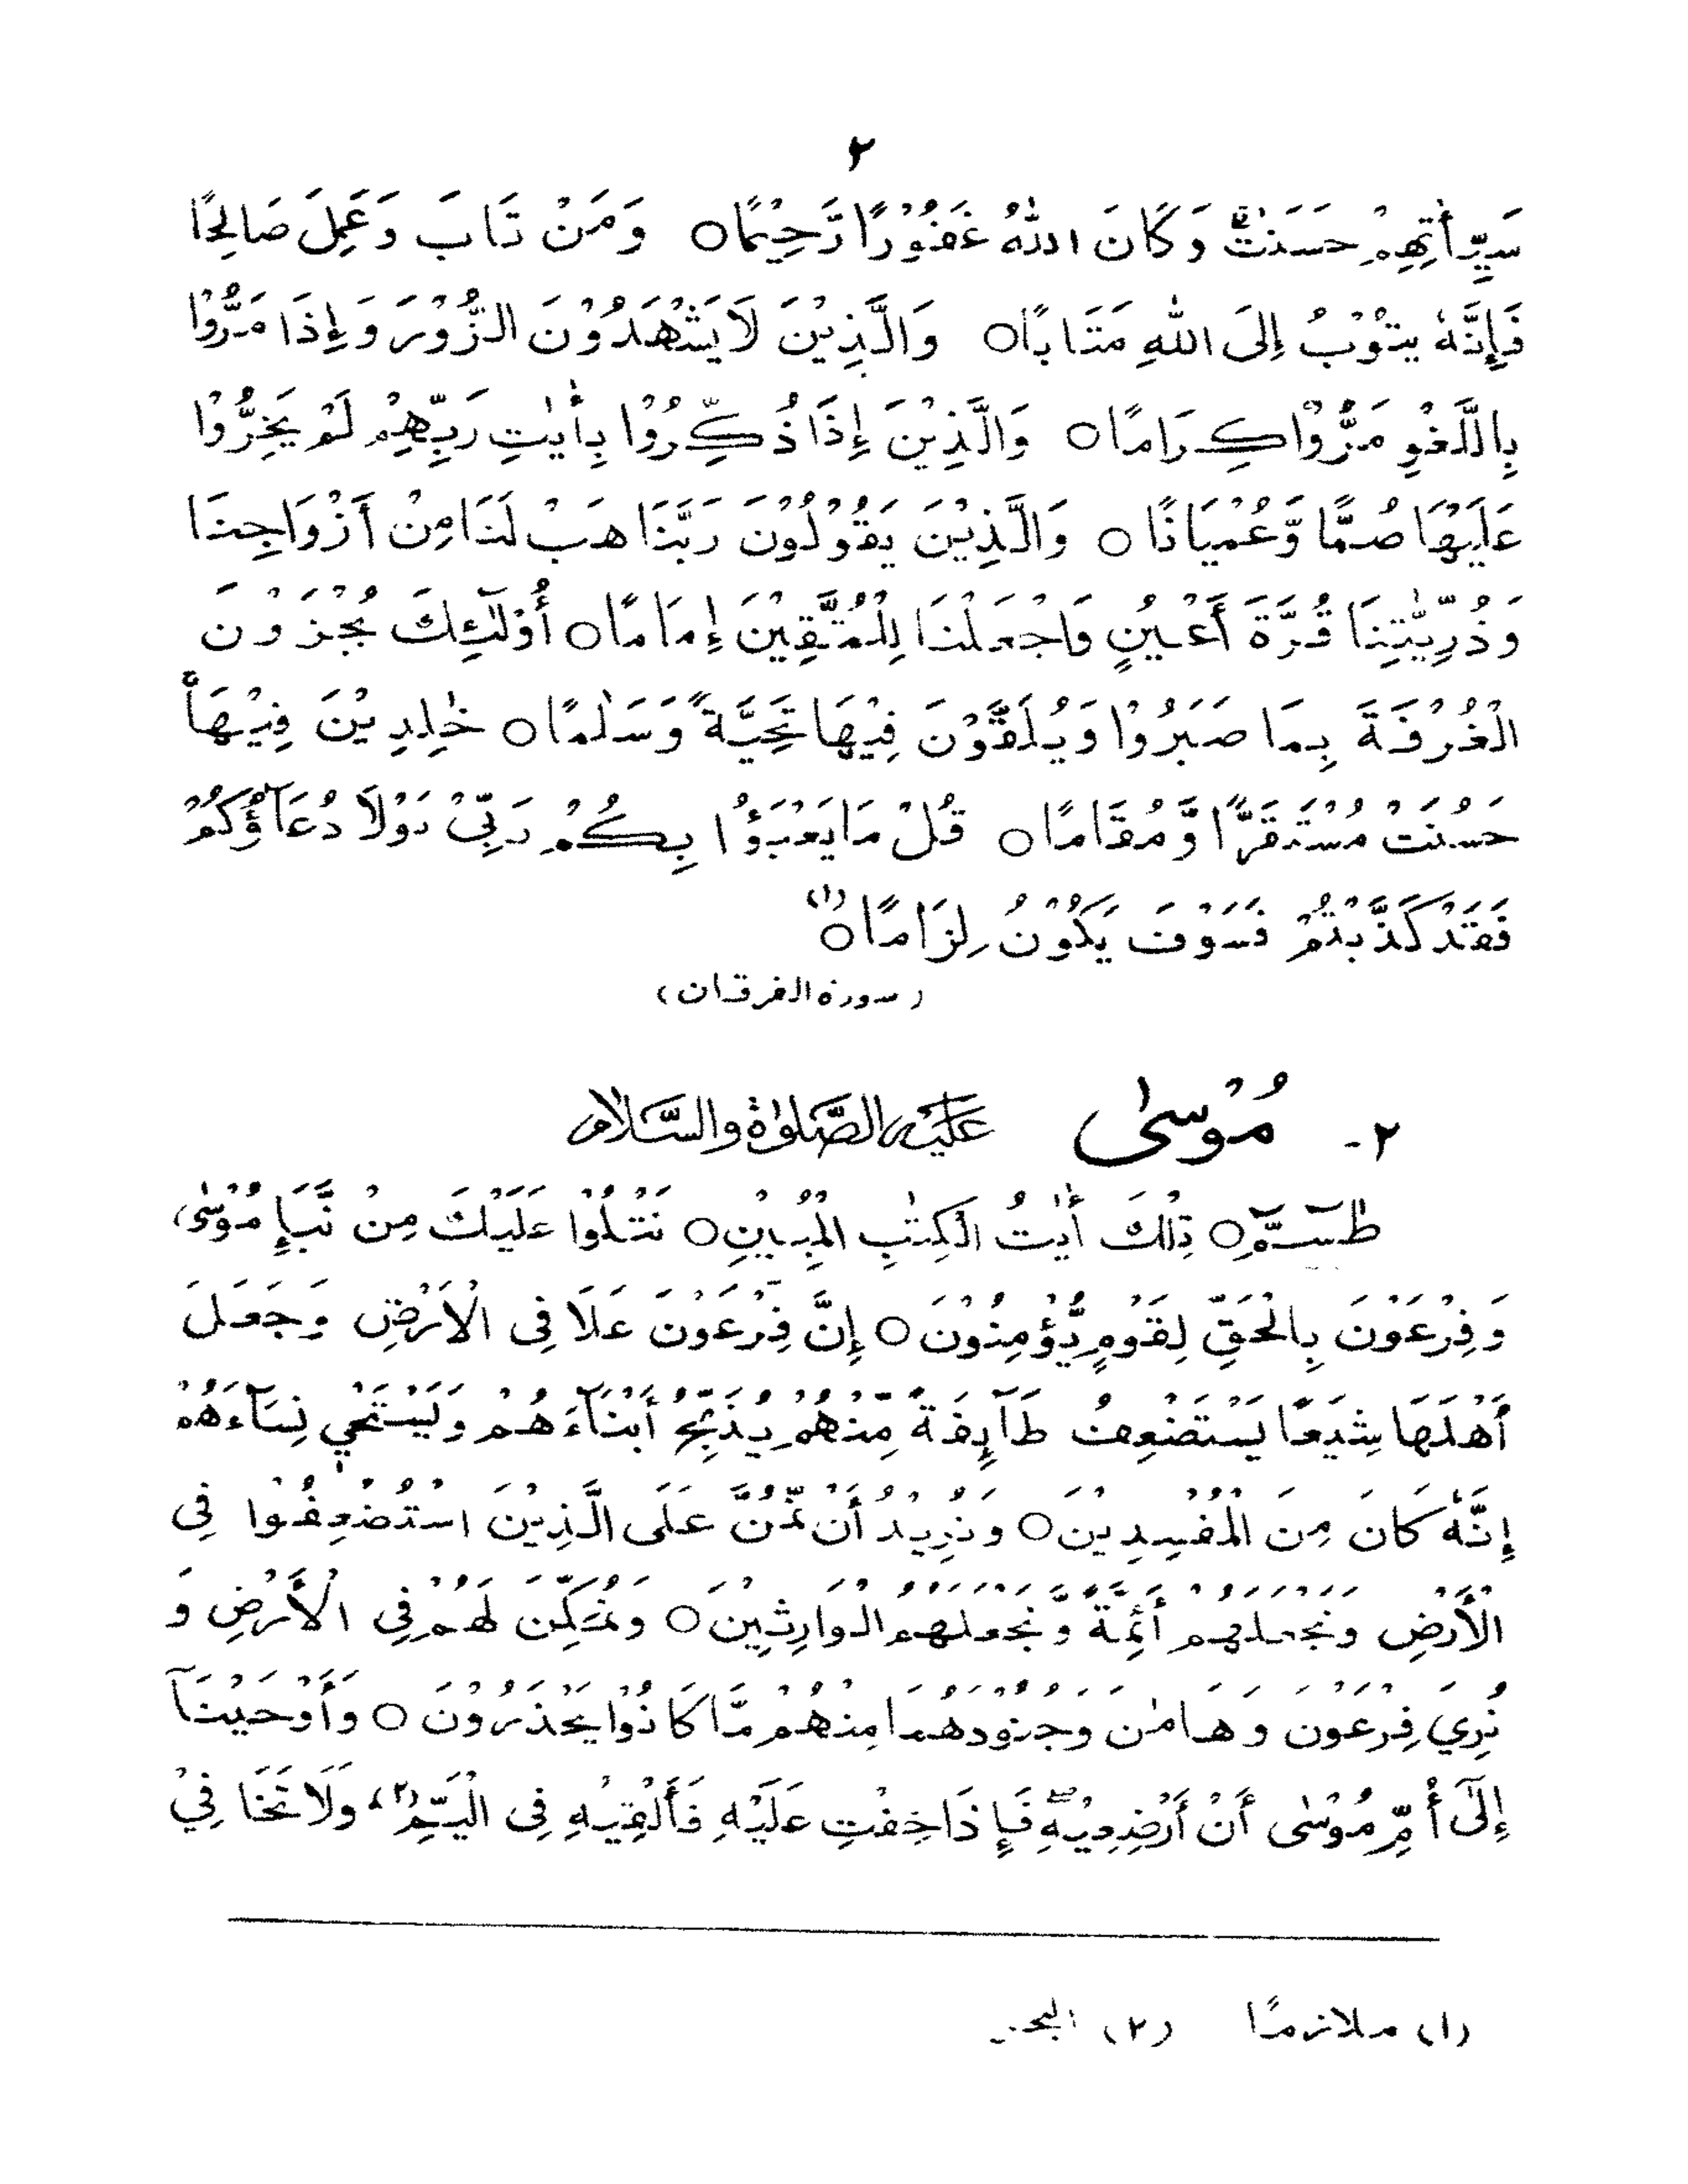 ٢
سَيِّأٰتِهِمْ حَسَنٰتٍؕ وَكَانَ اللّٰهُ غَفُوْرًا رَّحِيْمًا○ وَمَنْ تَابَ وَعَمِلَ صَالِحًا
فَإِنَّهٗ يَتُوْبُ إِلَى اللّٰهِ مَتَابًا○ وَالَّذِيْنَ لَا يَشْهَدُوْنَ الزُّوْرَ وَإِذَا مَرُّوْا
بِاللَّغْوِ مَرُّوْا كِرَامًا○ وَالَّذِيْنَ إِذَا ذُكِّرُوْا بِأٰيٰتِ رَبِّهِمْ لَمْ يَخِرُّوْا
عَلَيْهَا صُمًّا وَّعُمْيَانًا○ وَالَّذِيْنَ يَقُوْلُوْنَ رَبَّنَا هَبْ لَنَا مِنْ أَزْوَاجِنَا
وَذُرِّيّٰتِنَا قُرَّةَ أَعْيُنٍ وَاجْعَلْنَا لِلْمُتَّقِيْنَ إِمَامًا○ أُوْلٰٓئِكَ يُجْزَوْنَ
الْغُرْفَةَ بِمَا صَبَرُوْا وَيُلَقَّوْنَ فِيْهَا تَحِيَّةً وَّسَلٰمًا○ خٰلِدِيْنَ فِيْهَاؕ
حَسُنَتْ مُسْتَقَرًّا وَّمُقَامًا○ قُلْ مَا يَعْبَؤُا بِكُمْ رَبِّيْ لَوْلَا دُعَآؤُكُمْ
فَقَدْ كَذَّبْتُمْ فَسَوْفَ يَكُوْنُ لِزَامًا○(١)
(سورة الفرقان)
٢- مُوْسٰى عَلَيْهِ الصَّلوٰةُ وَالسَّلَامُ
طٰسٓمّٓ○ تِلْكَ أٰيٰتُ الْكِتٰبِ الْمُبِيْنِ○ نَتْلُوْا عَلَيْكَ مِنْ نَّبَإِ مُوْسٰى
وَفِرْعَوْنَ بِالْحَقِّ لِقَوْمٍ يُّؤْمِنُوْنَ○ إِنَّ فِرْعَوْنَ عَلَا فِى الْأَرْضِ وَجَعَلَ
أَهْلَهَا شِيَعًا يَّسْتَضْعِفُ طَآئِفَةً مِّنْهُمْ يُذَبِّحُ أَبْنَآءَهُمْ وَيَسْتَحْيٖ نِسَآءَهُمْ
إِنَّهٗ كَانَ مِنَ الْمُفْسِدِيْنَ○ وَنُرِيْدُ أَنْ نَّمُنَّ عَلَى الَّذِيْنَ اسْتُضْعِفُوْا فِى
الْأَرْضِ وَنَجْعَلَهُمْ أَئِمَّةً وَّنَجْعَلَهُمُ الْوَارِثِيْنَ○ وَنُمَكِّنَ لَهُمْ فِى الْأَرْضِ وَ
نُرِيَ فِرْعَوْنَ وَهَامٰنَ وَجُنُوْدَهُمَا مِنْهُمْ مَّا كَانُوْا يَحْذَرُوْنَ○ وَأَوْحَيْنَآ
إِلٰٓى أُمِّ مُوْسٰى أَنْ أَرْضِعِيْهِۚ فَإِذَا خِفْتِ عَلَيْهِ فَأَلْقِيْهِ فِى الْيَمِّ(٢) وَلَا تَخَافِيْ
(١) ملازمًا (٢) البحر